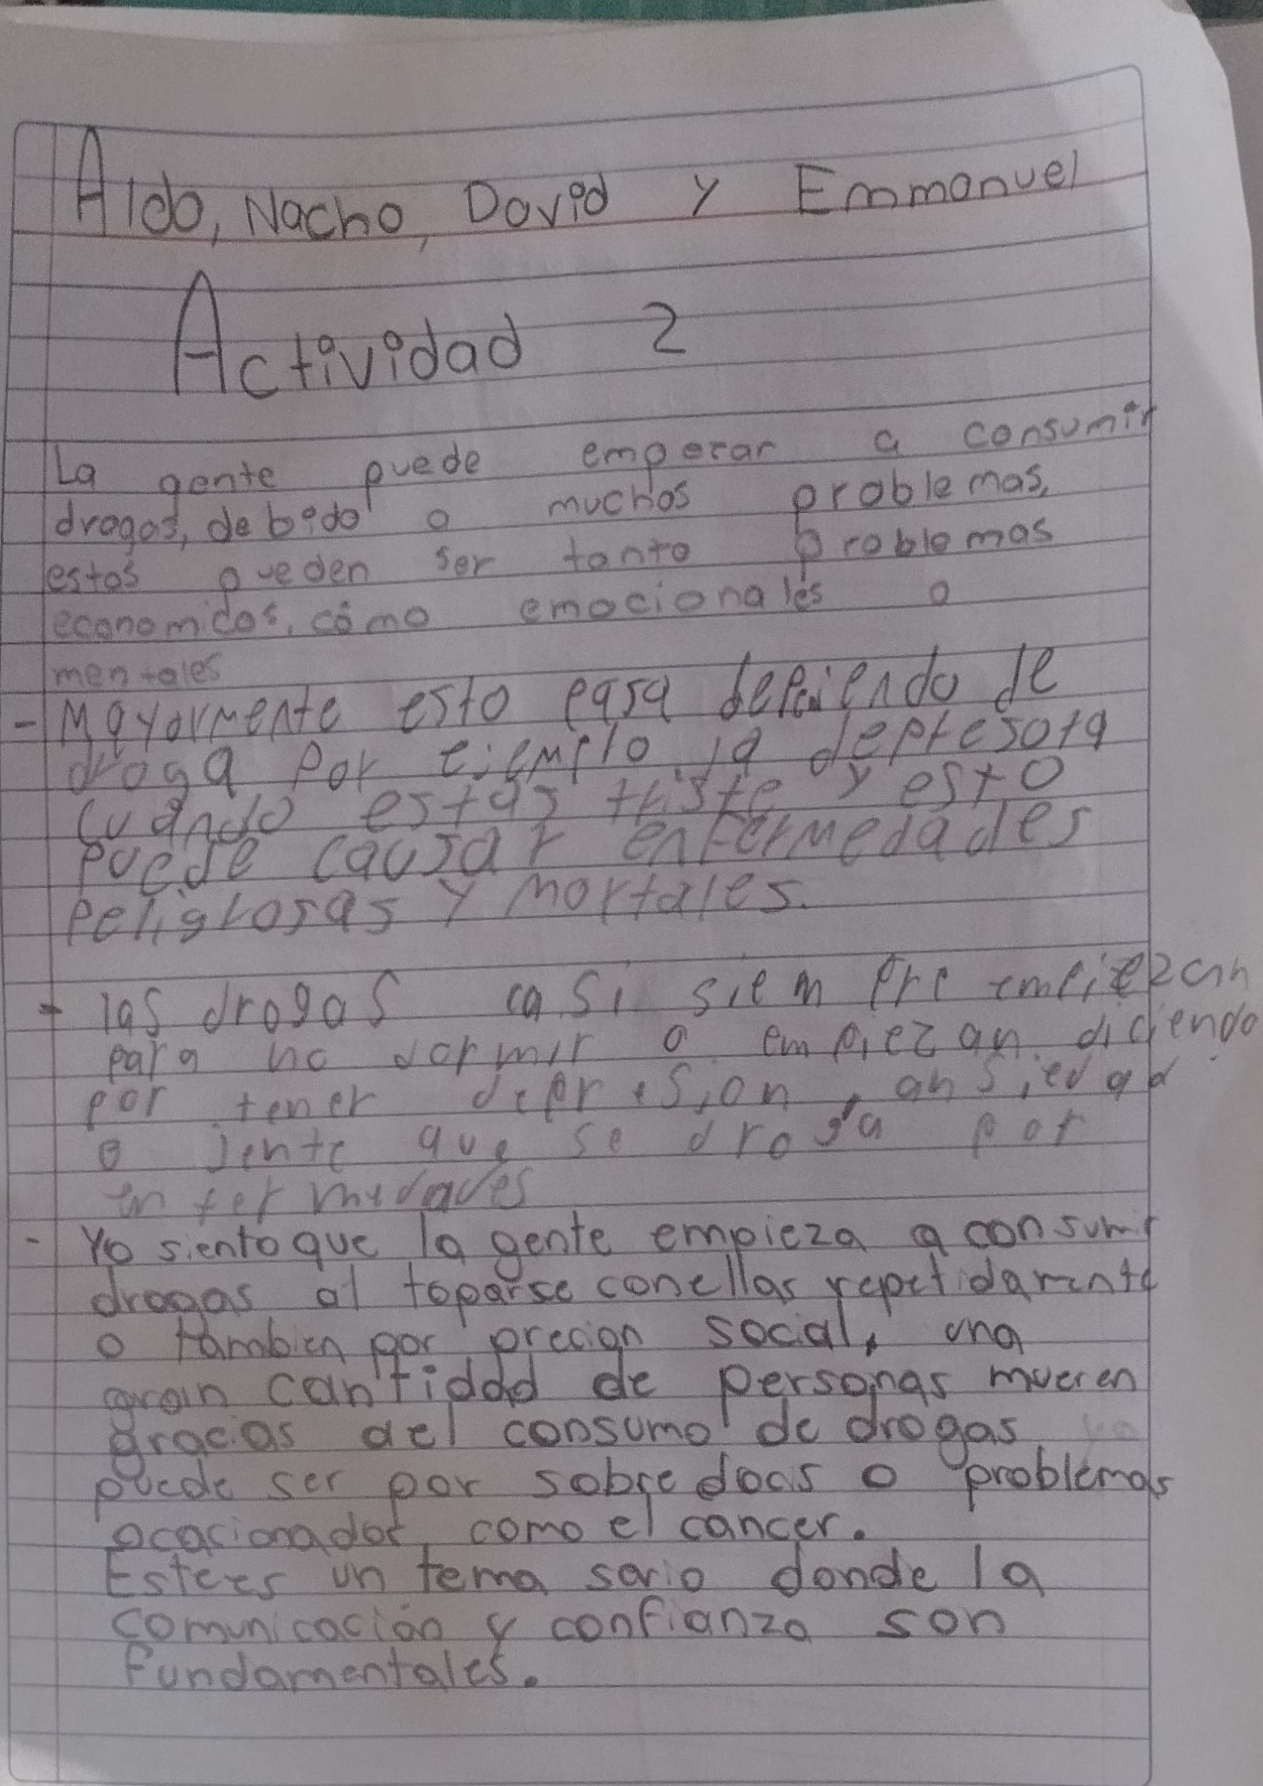 Aldo, Nacho, David y Emmanuel
Actividad 2
La gente puede empezar a consumir
drogas, debido a muchos problemas,
estos pueden ser tanto problemas
economicos, cómo emocionales o
mentales
- Mayormente esto pasa depeniendo de
droga por ejemplo la depresora
cuándo estás triste y esto
puede causar enfermedades
peligrosas y mortales.
- las drogas casi siempre empiezan
para no dormir o empiezan diciendo
por tener depresion, ansiedad
o jente que se droga por
enfermedades
- Yo siento que la gente empieza a consumir
drogas al toparse con ellas repetidamente
o tambien por precion social, una
gran cantidad de personas mueren
gracias del consumo de drogas
puede ser por sobredocis o problemas
ocacionados como el cancer.
Este es un tema serio donde la
comunicación y confianza son
fundamentales.